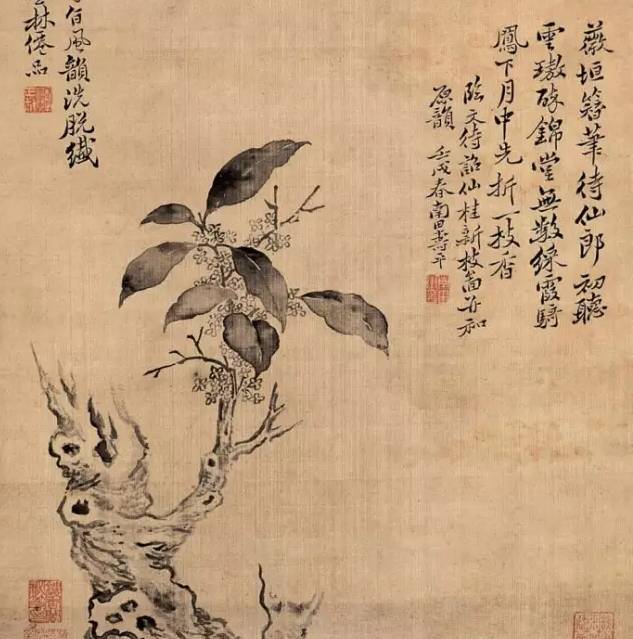 薇垣簪筆待仙郎初聽
雲璈醉錦堂無數綵霞騎
鳳下月中先折一枝香
臨文待詔仙桂新枝啚并和
原韻 壬戌春南田壽平
風韻洗脱纖
林僊品